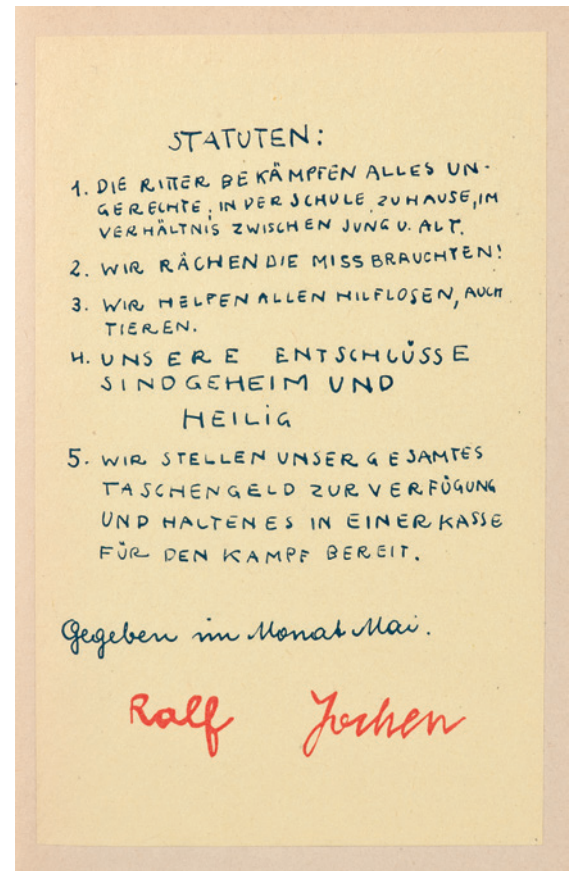 STATUTEN:
1. DIE RITTER BEKÄMPFEN ALLES UN-
GERECHTE; IN DER SCHULE, ZUHAUSE, IM
VERHÄLTNIS ZWISCHEN JUNG U. ALT.
2. WIR RÄCHEN DIE MISSBRAUCHTEN!
3. WIR HELFEN ALLEN HILFLOSEN, AUCH
TIEREN.
4. UNSERE ENTSCHLÜSSE
SIND GEHEIM UND
HEILIG
5. WIR STELLEN UNSER GESAMTES
TASCHENGELD ZUR VERFÜGUNG
UND HALTEN ES IN EINER KASSE
FÜR DEN KAMPF BEREIT.
Gegeben im Monat Mai.
Ralf Jochen